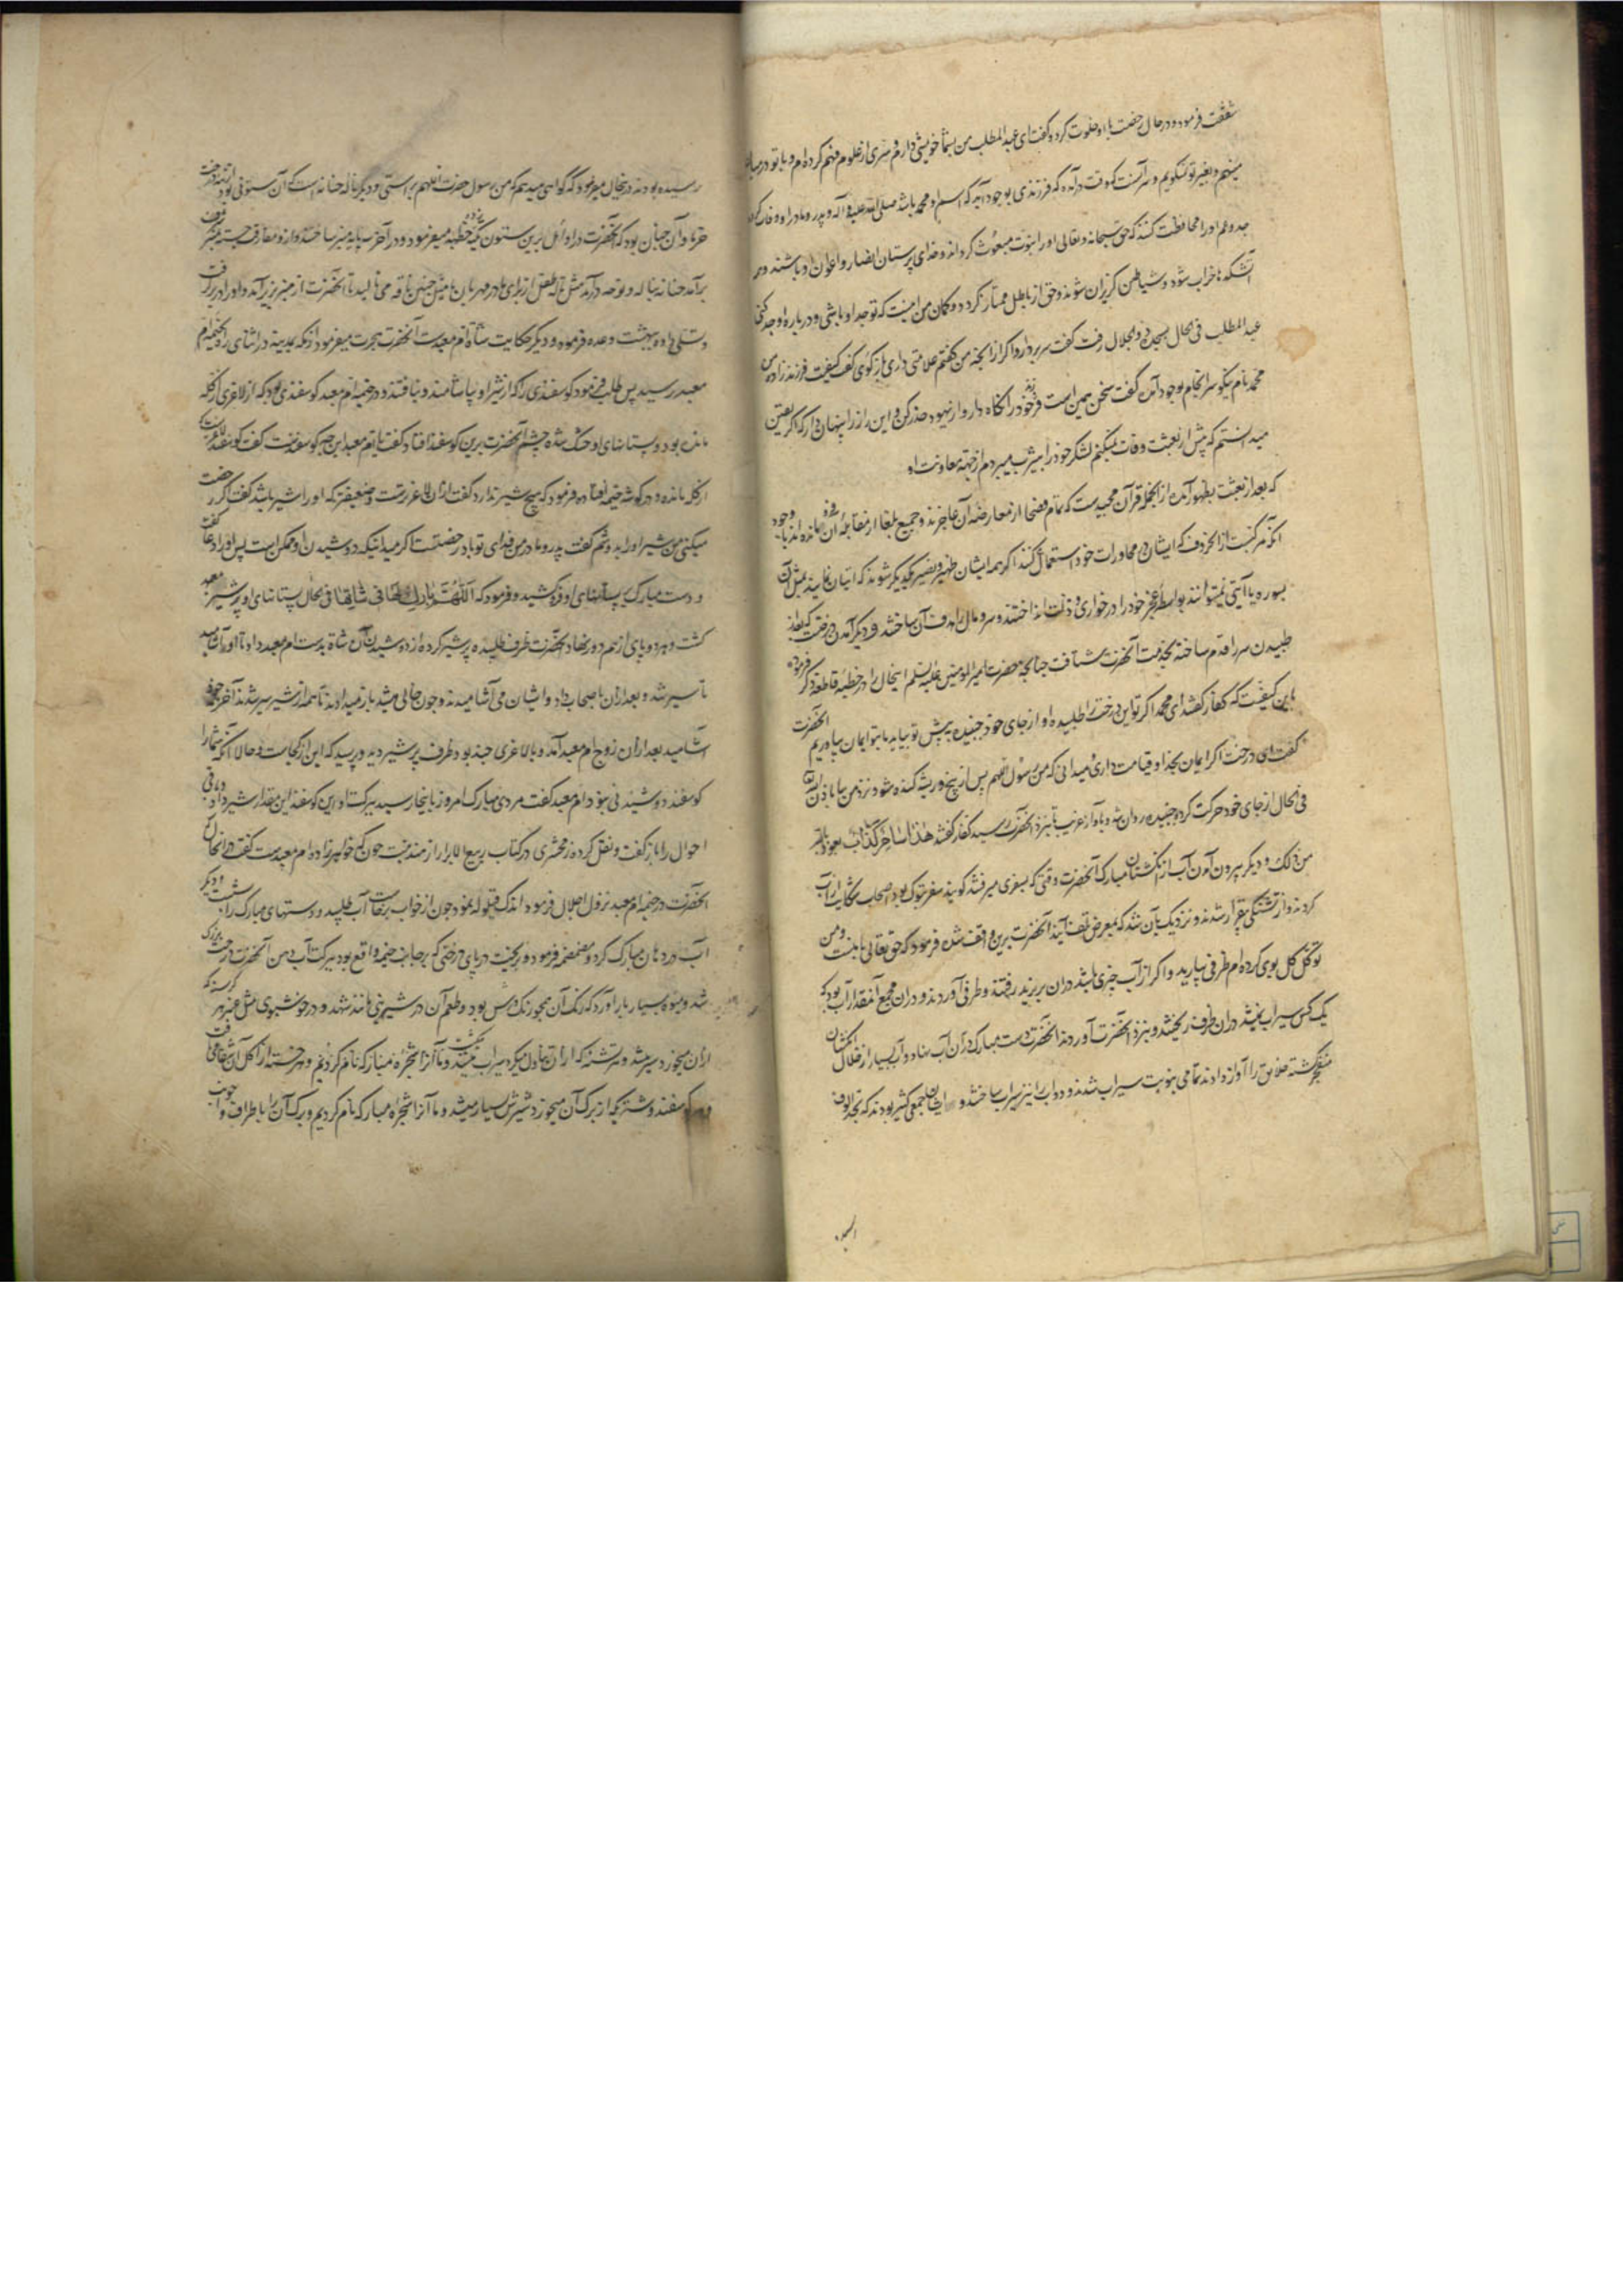 شفقت فرمود و در حال رخصت با او خلوت کرد و گفت ای عبدالمطلب من بشما خویشی دارم و سری از علوم فهم کرده ام و با تو در میان
مینهم و بغیر تو نگویم و سر آنست که وقت در آمده که فرزندی بوجود آید که اسم او محمد باشد صلی الله علیه و آله و پدر و مادر او وفات کنند
جد و عم او را محافظت کنند که حق سبحانه و تعالی او را بنوت مبعوث گرداند و خدای پرستان انصار و اعوان او باشند و همه
آتشکدها خراب شود و شیاطین گریزان شوند و حق از باطل ممتاز گردد و گمان من اینست که تو جد او باشی و درباره او جد کنی
عبدالمطلب فی الحال بسجده ذو الجلال رفت گفت سر بردار و اگر از آنچه من گفتم علامتی داری باز گوی گفت کیفیت فرزندزاده من
محمد نام نیکو سرانجام بوجود آمده گفت سخن همین است فرزند خود را نگاه دار و از یهود حذر کن و این راز را پنهان دار که اگر یقین
میدانستم که پیش از بعثت وفات نمیکنم لشکر خود را بیثرب میبردم از جهة معاونت او
که بعد از بعثت بظهور آمده از آنجمله قرآن مجیدست که تمام فصحا از معارضه آن عاجزند و جمیع بلغا از مقابله آن فرو مانده اند با وجود
آنکه مرکبست از آنحروف که ایشان در محاورات خود استعمال کنند اگر همه ایشان ظهیر و نصیر یکدیگر شوند که اتیان نمایند بمثل آن
بسوره یا آیتی نمیتوانند بواسطه عجز خود را در خواری و ذلت انداختند و سر و مال را هدف آن ساختند و دیگر آمدن درخت که بعد از
طبیدن سر را قدم ساخته بخدمت آنحضرت شتافت چنانچه حضرت امیرالمؤمنین علیه السلم اینحال را در خطبه قاطعه ذکر فرموده
باین کیفیت که کفار گفتند ای محمد اگر تو این درخت را طلبیده او از جای خود جنبیده پیش تو بیاید ما بتو ایمان بیاوریم آنحضرت
گفت ای درخت اگر ایمان بخدا و قیامت داری و میدانی که من رسول اللهم پس از بیخ و ریشه کنده شو و نزد من بیا باذن الله
فی الحال از جای خود حرکت کرد و جنبیده روان شد و با آواز غریب تا نزد آنحضرت رسید کفار گفتند هذا ساحر کذاب نعوذ بالله
من ذلک و دیگر بیرون آمدن آب از انگشتان مبارک آنحضرت وقتی که بسفری میرفتند گویند سفر تبوک بود اصحاب شکایت از آب
کردند و از تشنگی بیقرار شدند و نزدیک بآن شد که بمعرض تلف آیند آنحضرت برین واقف شده فرمود که حق تعالی با منست و من
توکل کل بوی کرده ام ظرفی بیارید و اگر از آب چیزی باشد در آن بریزید رفتند و ظرفی آوردند و در آن مجمع آنقدر آب بود که
یک کس سیراب نمیشد در آن ظرف ریختند و بنزد آنحضرت آوردند آنحضرت دست مبارک در آن آب نهاد و آب بسیار از خلال انگشتان
منفجر گشته خلایق را آواز دادند تمامی بنوبت سیراب شدند و دواب را نیز سیراب ساختند و ایشان جمعی کثیر بودند که بحد الوف
رسیده بودند و درینحال میفرمود که گواهی میدهم که من رسول حضرت اللهم براستی و دیگر ناله حنانه است که آن ستونی بود از درخت
خرما و آن چنان بود که آنحضرت در اوائل برین ستون تکیه کرده خطبه میفرمود و در آخر سه پایه منبر ساختند و از و مفارقت جسته بمنبر
برآمد حنانه بناله و نوحه درآمد مثل ناله طفل از برای مادر مهربان یا مثل حنین ناقه می نالید تا آنحضرت از منبر بزیر آمد و او را در بر گرفت
و تسلی داده ببهشت وعده فرمود و دیگر حکایت شاة ام معبدست آنحضرت هجرت میفرمود از مکه بمدینه در اثنای راه بخیمه ام
معبد رسید پس طلب فرمود گوسفندی را که از شیر او بیاشامند و نیافتند و در خیمه ام معبد گوسفندی بود که از لاغری از گله
مانده بود و پستانهای او خشک شده چشم آنحضرت برین گوسفند افتاد گفت یا ام معبد این چه گوسفندست گفت گوسفند لاغریست
از گله مانده و در گوشه خیمه افتاده فرمود که هیچ شیر ندارد گفت از آن لاغرترست و ضعیفتر که او را شیر باشد گفت اگر رخصت
میکنی من شیر او را بدوشم گفت پدر و مادر من فدای تو باد رخصتست اگر میدانی که دوشیدن او ممکن است پس او را دعا گفت
و دست مبارک بر پستانهای او فرو کشید و فرمود که اللهم بارک لها فی شاتها فی الحال پستانهای او پر شیر
گشت و هر دو پای از هم دور نهاد آنحضرت ظرف طلبیده پر شیر کرده از دوشیدن آن شاة بدست ام معبد داد تا او آشامید
تا سیر شد و بعد از آن باصحاب داد و ایشان می آشامیدند و چون خالی میشد باز میدادند تا همه از شیر سیر شدند آخر خود
آشامید بعد از آن زوج ام معبد آمد و بالاغری چند بود ظرف پر شیر دید و پرسید که این از کجاست و حالا آنکه شما را
گوسفند دوشیدنی نبود ام معبد گفت مردی مبارک امروز باینجا رسید ببرکت او این گوسفند این مقدار شیر داد و باقی
احوال را باز گفت و نقل کرده زمخشری در کتاب ربیع الابرار از هند بنت جون که خواهرزاده ام معبدست گفت
آنحضرت در خیمه ام معبد نزول اجلال فرمود اندک قیلوله نمود چون از خواب برخاست آب طلبید و دستهای مبارک را بشست و دیگر
آب در دهان مبارک کرد و مضمضه فرمود و ریخت در پای درختی که بر جانب خیمه واقع بود ببرکت آب دهن آنحضرت درخت بزرگ
شد و میوه بسیار بار آورد که رنگ آن همچو رنگ ورس بود و طعم آن در شیرینی مانند شهد و در خوشبوی مثل عنبر هر گرسنه که
از آن میخورد سیر میشد و هر تشنه که از آن تناول میکرد سیراب میگشت و ما آنرا شجره مبارکه نام کردیم و هر خسته از اکل آن شفا می یافت
و هر گوسفند و شتر که از برگ آن میخورد شیرش بسیار میشد و ما آنرا شجره مبارکه نام کردیم و برگ آن را باطراف و جوانب